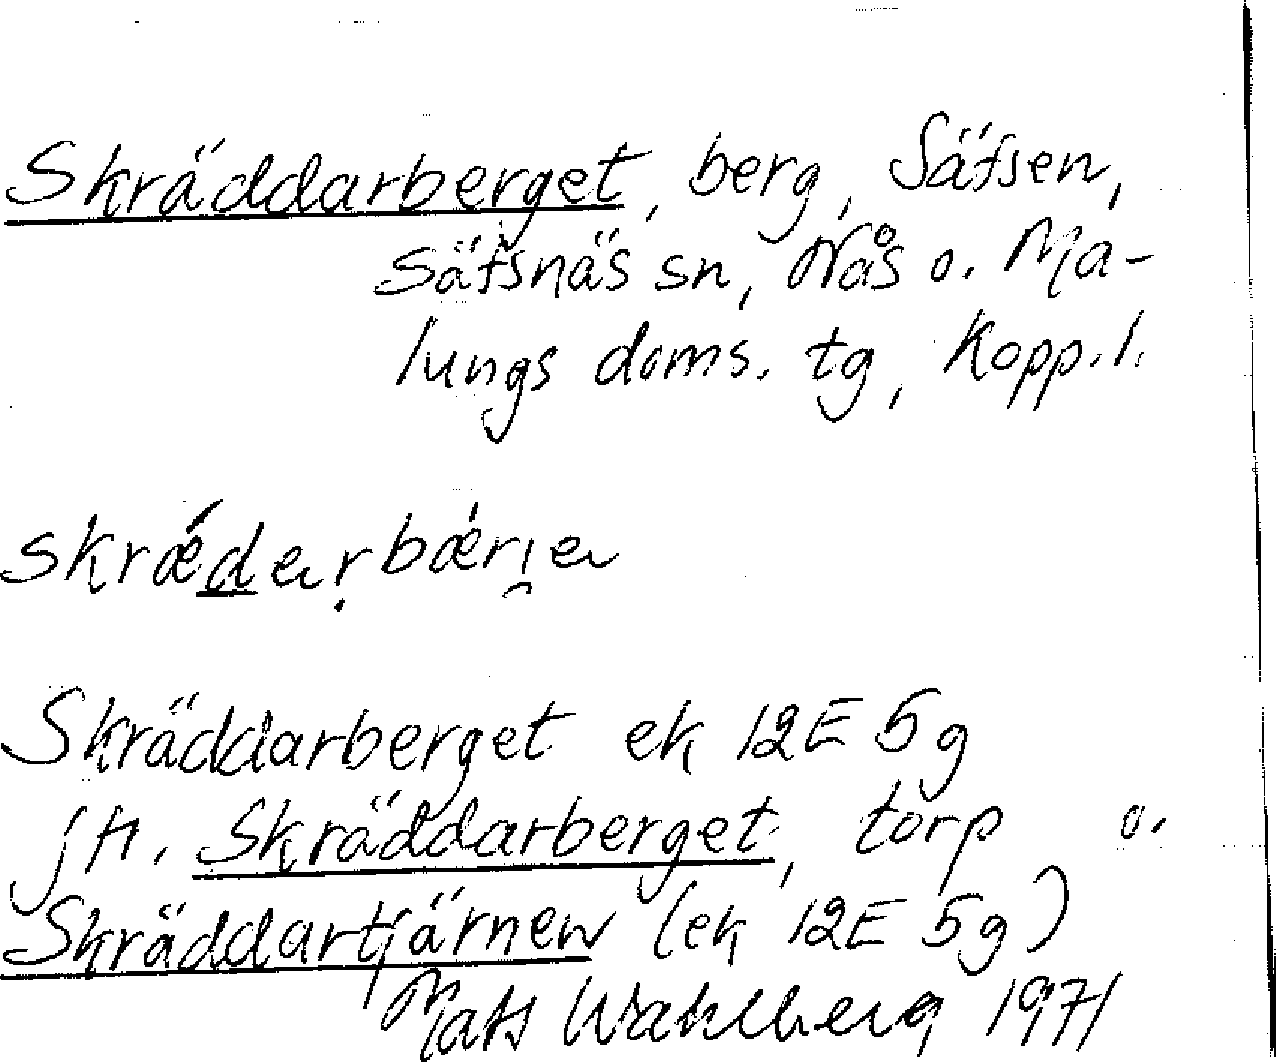 Skräddarberget, berg, Säfsen,
Säfsnäs sn, Nås o. Ma-
lungs doms. tg, Kopp. l.
skrǽdarbæri̯a
Skräddarberget ek 12E 5g
jfr. Skräddarberget, torp o.
Skräddartjärnen (ek 12E 5g)
Mats Wahlberg 1971